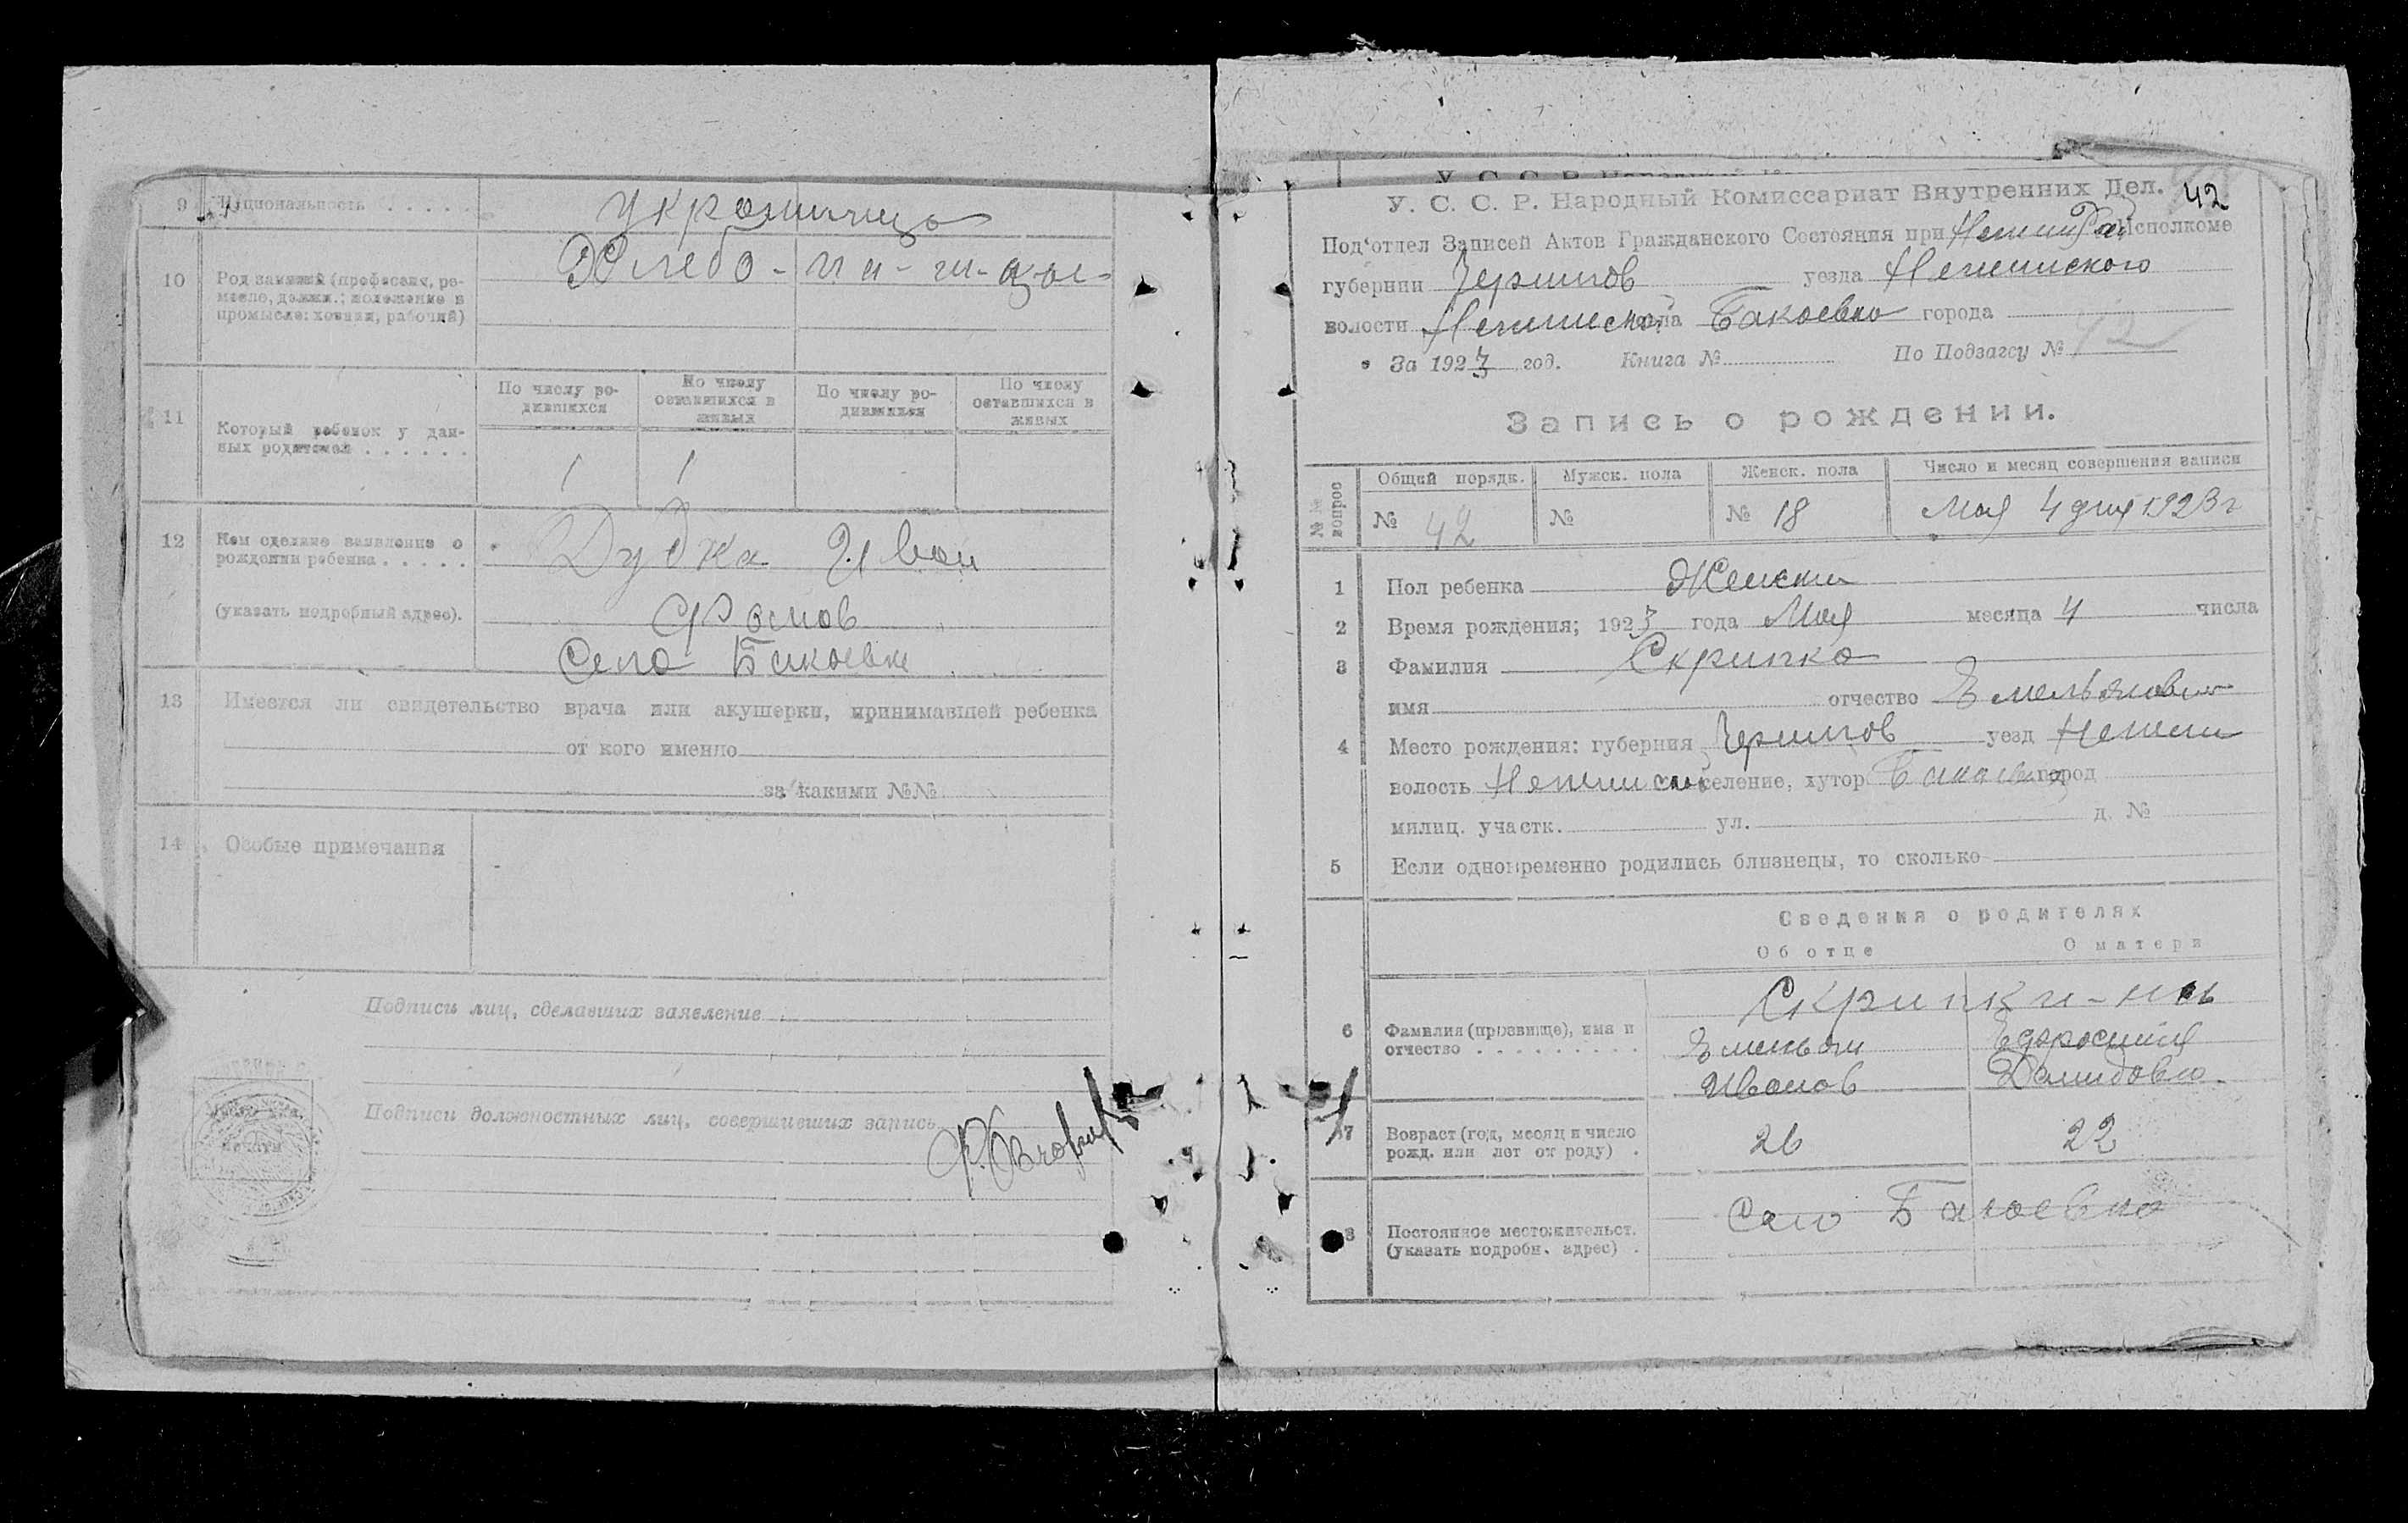 9 Национальность . . . . .
Украинца
10 Род занятий (професcия, ре-
месло, должн.; положение в
промысле: хозяин, рабочий)
Хлебо-па-ш-цы-
11 Который ребенок у дан-
ных родителей . . . . . .
По числу ро-
дившихся
По числу
оставшихся в
живых
По числу ро-
дившихся
По числу
оставшихся в
живых
1 1
12 Кем сделано заявление о
рождении ребенка . . . . .
(указать подробный адрес).
Дудка Иван
Фомов
Село Бакаевка
13 Имеется ли свидетельство врача или акушерки, принимавшей ребенка
от кого именно
за какими №№
14 Особые примечания
Подписи лиц, сделавших заявление
Подписи должностных лиц, совершивших запись
У. С. С. Р. Народный Комиссариат Внутренних Дел. 42
Под'отдел Записей Актов Гражданского Состояния при Нежин Рай Исполкоме
губернии Чернигов уезда Неженского
волости Неженской села Бакаевка города
За 1923 год. Книга № По Подзагсу № 42
Запись о рождении.
№№ вопрос Общий порядк. Мужск. пола Женск. пола Число и месяц совершения записи
№ 42 № № 18 Мая 4 дня 1923 г
1 Пол ребенка Женски
2 Время рождения; 1923 года Мая месяца 4 числа
3 Фамилия Скрипка
имя отчество Емельяновна
4 Место рождения: губерния Чернигов уезд Нежин
волость Неженской селение, хутор Бакаевка город
милиц. участк. ул. д. №
5 Если одновременно родились близнецы, то сколько
Сведения о родителях
Об отце О матери
6 Фамилия (прозвище), имя и
отчество . . . . . . . . .
Скрипки-ны
Емельян Ефросиния
Иванов Демидовна
7 Возраст (год, месяц и число
рожд. или лет от роду) .
26 22
8 Постоянное местожительст.
(указать подробн. адрес) .
Село Бакаевка